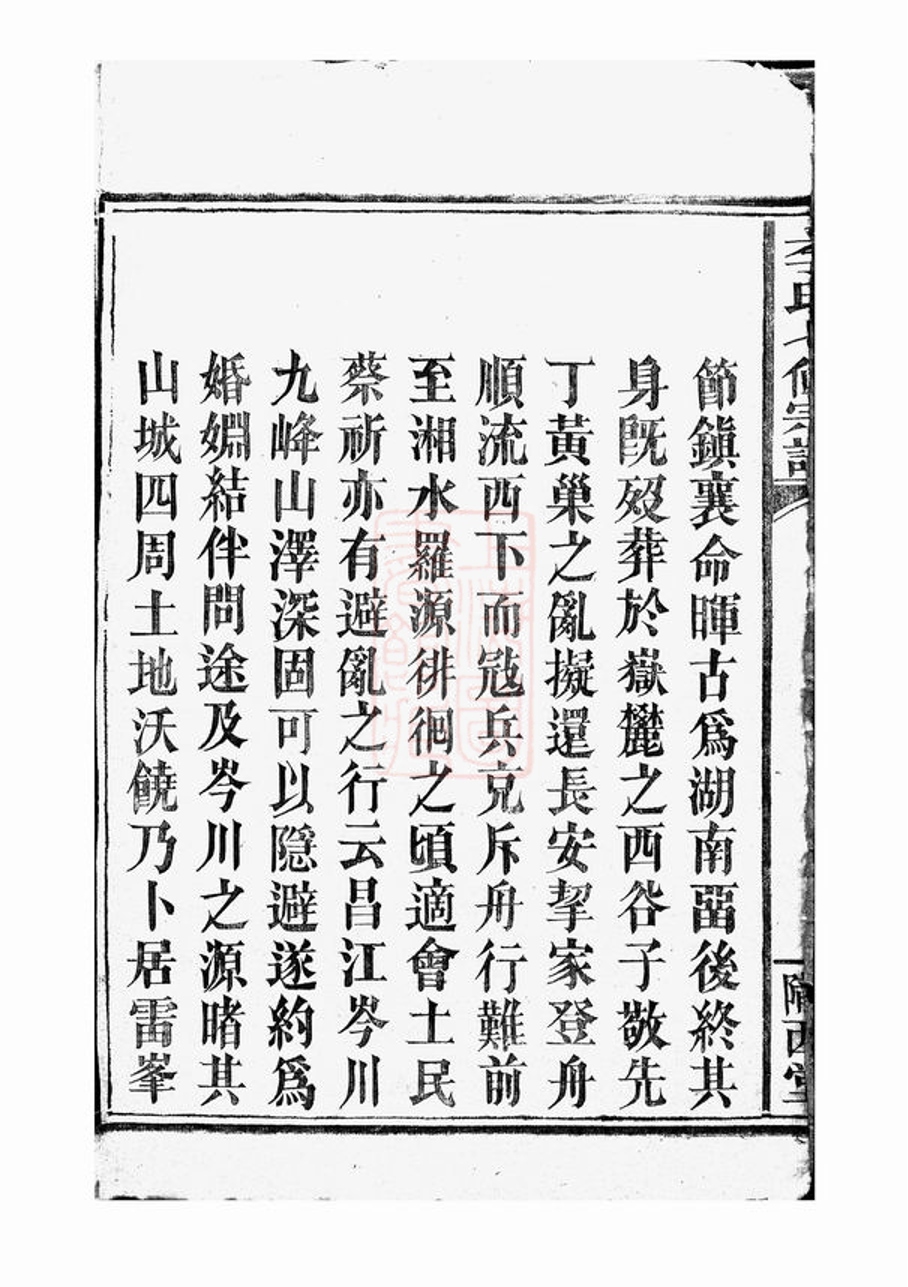 李氏七修宗譜
隴西堂
節鎭襄命暉古爲湖南畱後終其
身旣歿葬於嶽麓之西谷子敬先
丁黃巢之亂擬還長安挈家登舟
順流西下而寇兵克斥舟行難前
至湘水羅源徘徊之頃適會土民
蔡祈亦有避亂之行云昌江岑川
九峰山澤深固可以隱避遂約爲
婚姻結伴問途及岑川之源睹其
山城四周土地沃饒乃卜居雷峯